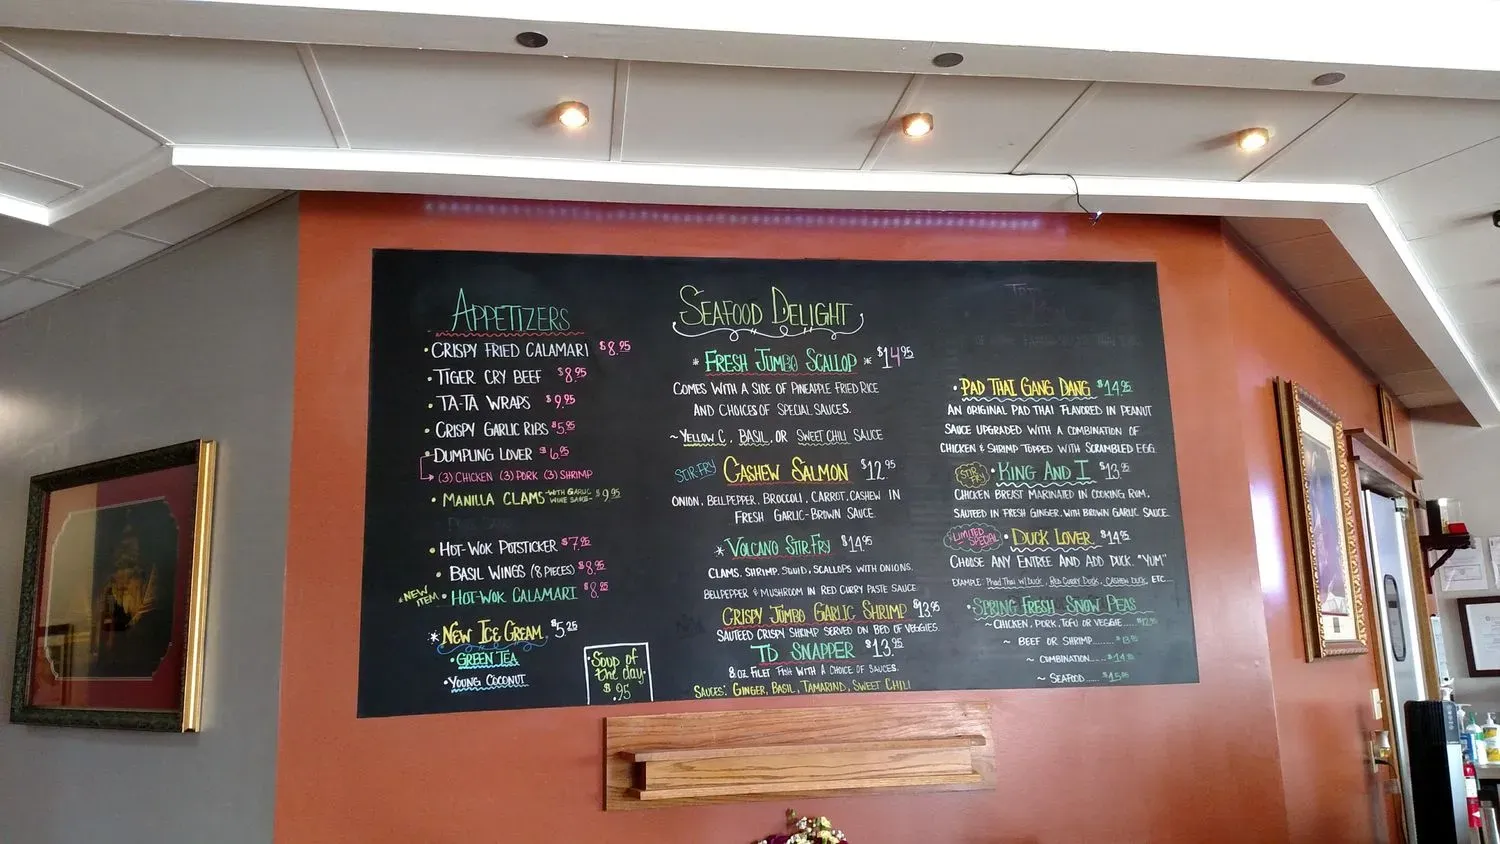 APPETIZERS
• CRISPY FRIED CALAMARI $8.95
• TIGER CRY BEEF $8.95
• TA-TA WRAPS $9.95
• CRISPY GARLIC RIBS $5.95
• DUMPLING LOVER $6.95
(3) CHICKEN (3) PORK (3) SHRIMP
• MANILLA CLAMS -WITH GARLIC WINE SAUCE- $9.95
• HOT-WOK POTSTICKER $7.95
• BASIL WINGS (8 PIECES) $8.95
* NEW ITEM • HOT-WOK CALAMARI $8.95
* NEW ICE CREAM $5.25
• GREEN TEA
• YOUNG COCONUT
• Soup of the day •
$ .95
SEAFOOD DELIGHT
* FRESH JUMBO SCALLOP * $14.95
COMES WITH A SIDE OF PINEAPPLE FRIED RICE
AND CHOICES OF SPECIAL SAUCES.
~ YELLOW C, BASIL, OR SWEET CHILI SAUCE
STIR-FRY CASHEW SALMON $12.95
ONION, BELLPEPPER, BROCCOLI, CARROT, CASHEW IN
FRESH GARLIC-BROWN SAUCE.
* VOLCANO STIR.FRY $14.95
CLAMS, SHRIMP, SQUID, SCALLOPS WITH ONIONS,
BELLPEPPER & MUSHROOM IN RED CURRY PASTE SAUCE
CRISPY JUMBO GARLIC SHRIMP $13.95
SAUTEED CRISPY SHRIMP SERVED ON BED OF VEGGIES.
TD SNAPPER $13.95
8 OZ. FILET FISH WITH A CHOICE OF SAUCES.
SAUCES: GINGER, BASIL, TAMARIND, SWEET CHILI
• PAD THAI GANG DANG $14.95
AN ORIGINAL PAD THAI FLAVORED IN PEANUT
SAUCE UPGRADED WITH A COMBINATION OF
CHICKEN & SHRIMP TOPPED WITH SCRAMBLED EGG.
STIR FRY • KING AND I $13.95
CHICKEN BREAST MARINATED IN COOKING RUM,
SAUTEED IN FRESH GINGER, WITH BROWN GARLIC SAUCE.
LIMITED SPECIAL • DUCK LOVER $14.95
CHOOSE ANY ENTREE AND ADD DUCK. "YUM"
EXAMPLE: PHAD THAI W/ DUCK, RED CURRY DUCK, CASHEW DUCK, ETC...
• SPRING FRESH SNOW PEAS
~ CHICKEN, PORK, TOFU OR VEGGIE......
~ BEEF OR SHRIMP.........
~ COMBINATION.....
~ SEAFOOD..... $15.95